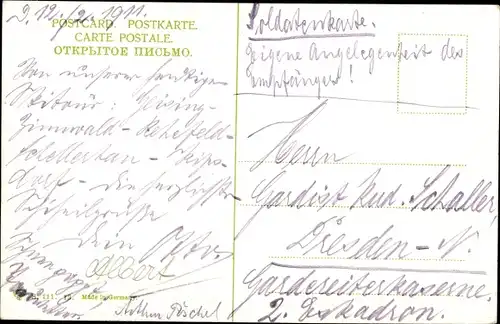 D. 12./2. 1911.
POSTCARD. POSTKARTE.
CARTE POSTALE.
ОТКРЫТОЕ ПИСЬМО.
Von unserer heutigen
Skitour: Geising-
Zinnwald - Rehefeld-
Schellerhau - Kips-
dorf - die herzlichsten
Schiheilgrüße
Dein
Albert
Made in Germany
Arthur Pöschel
Soldatenkarte.
Eigene Angelegenheit des
Empfängers!
Herrn
Gardist Rud. Schaller,
Dresden-N.
Gardereiterkaserne.
2. Eskadron.